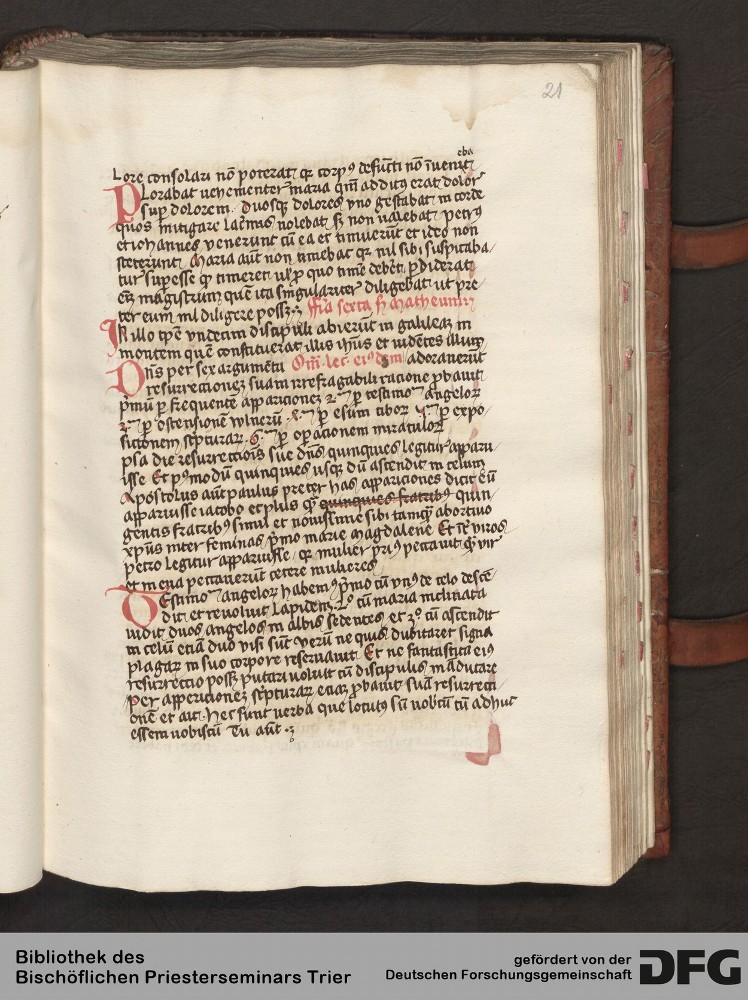 21
eba
Lore consolari nō poterat qꝛ corpꝰ defūcti nō īuenit
Plorabat vehementer maria qm̄ additꝰ erat dolor
suꝑ dolorem. Duosqꝫ dolores vno gestabat in corde
quos mitigare lacrimis nolebat sꝫ non valebat petrꝰ
et iohannes venerunt cū ea et timuerūt et ideo non
steterunt Maria aūt non timebat qꝛ nil sibi suspicaba/
tur suꝑesse qꝰ timeret ꝓ quo timē debēt ꝑdiderat
eī magistrum quē ita singulariter diligebat ut pre
ter eum nil diligere possꝫ Fīa sexta s Matheum
In illo tꝑe vndecim discipuli abierūt in galileaꝫ in
montem quē constituerat illis ihūs et videntes illum
Dn̄s per sex argumēta Om̄. lec. eiꝰdem adorauerūt
resurrectionez suam irrefragabili racione ꝓbauit
pͥmū ꝑ frequentē apparicionez 2 ꝑ testimo angeloꝝ
3 ꝑ ostensionē vlneꝝ 4 ꝑ esum ciboꝝ 5 ꝑ expo
sicionem scpturaꝝ 6 ꝑ oꝑacionem miraculoꝝ
psa die resurrectiōis sue dn̄s quinquies legitur apparu
isse Et pꝰmodū quinquies vsqꝫ dū ascendit in celum
Apostolus aūt paulus preter has appariciones dicit eū
apparuisse iacobo et plus qꝫ quinquies fratribꝰ quin
gentis fratribꝰ simul et nouissime sibi tamqꝫ abortiuo
xpūs inter feminas pͥmo marie magdalene Et īt viros
petro legitur apparuisse qꝛ mulier priꝰ peccauit qꝫ vir
et in eua peccauerūt cetere mulieres
Testimo angeloꝝ habemꝰ pͥmo cū vnꝰ de celo descē
dit et reuoluit lapidem 2º cū maria inclinata
vidit duos angelos in albis sedentes et 3º cū ascendit
in celū etiā duo visi sūt Verū ne quis dubitaret signa
plagaꝝ in suo corpore reseruauit Et ne fantastica eiꝰ
resurrectio possꝫ putari voluit cū discipulis māducare
Per appericionez scpturaꝝ etiaꝫ ꝓbauit suā resurrecti
onē et ait Hec sunt verba que locutꝰ sū vobis cū adhuc
essem vobiscū
Bibliothek des
Bischöflichen Priesterseminars Trier
gefördert von der
Deutschen Forschungsgemeinschaft
DFG